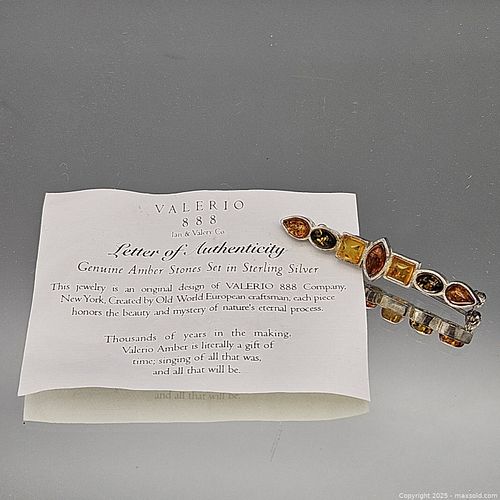 VALERIO
888
Ian & Valery Co.
Letter of Authenticity
Genuine Amber Stones Set in Sterling Silver
This jewelry is an original design of VALERIO 888 Company,
New York, Created by Old World European craftsman, each piece
honors the beauty and mystery of nature's eternal process.
Thousands of years in the making,
Valerio Amber is literally a gift of
time; singing of all that was,
and all that will be.
and all that will be.
Copyright 2025 - maxsold.com